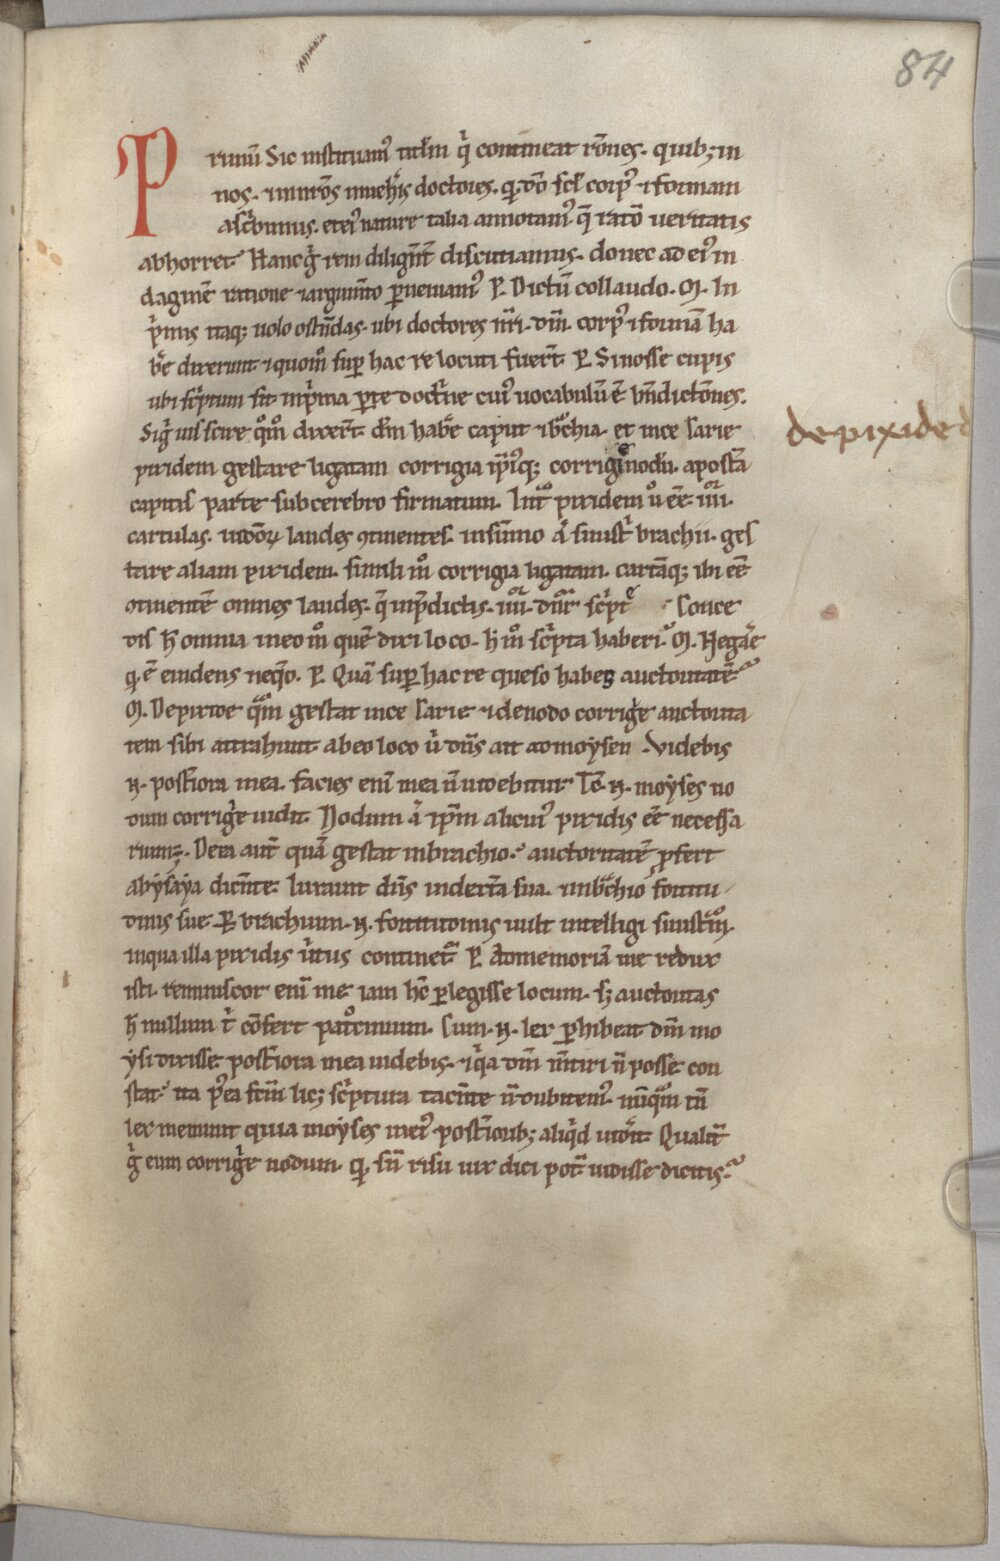 84
Primũ Sic instituam᷒ titl̃m q̇ contineat rõnes. quib; in
nos. ⁊ in nr̃os inuehẽris doctores. q̇ dõ scł corp᷒ ⁊ formam
asc̃bimus. et ei᷒ nature talia annotam᷒ q̃ ratõ ueritatis
abhorret. Hanc g̊ rem diligẽnt̃ discutiamus. donec ad ei᷒ in
daginẽ ratione ⁊ argum̃to ꝑueniam᷒ P. Dictũ collaudo. M. In
p̃mis itaq; uolo ost̃ndas. ubi doctores nr̃i. dm̃. corp᷒ ⁊ formã ha
b̃e dixerunt ⁊ quom̊ suꝑ hac re locuti fuer̃t. P. Si nosse cupis
ubi sc̃ptum sit. in p̃ma parte doct̃ne cui᷒ uocabulũ ẽ bñdictões.
Si g̊ uis scire qm̊ dixer̃t. dm̃ habẽ caput ⁊ b̃chia. et in cesarie
pixidem gestare ligatam corrigia ip̃iq; corrigie nodũ. a post̃a
capitis parte sub cerebro firmatum. Int̊ pixidem ů eẽ. iiii.
cartulas. iudõꝝ laudes ꝯtinentes. in sũmo a͛ sinist̃ brachii. ges
tare aliam pixidem. simili m̊ corrigia ligatam. cartãq; ibi eẽ
ꝯtinentẽ omnes laudes. q̃ in p̃dictis. iiii. dñr sc̃pte Sonce
dis h̃ omnia in eo m̊ quẽ dixi loco. h̊ m̊ sc̃pta haberi. M. Negar̃e
q̇ ẽ euidens neq̃o. P. Quã suꝑ hac re queso habes auctoritatẽ
M. De pixide qm̊ gestat in cesarie ⁊ de nodo corrigie auctorita
tem sibi attrahunt ab eo loco ů dñs ait ad moysen. Videbis
.n. post̃iora mea. facies enĩ mea ñ uidebitur. Id̃. n. moyses no
dum corrigie uidit. Nodum a͛ ip̃m alicui᷒ pixidis eẽ necessa
rium;. De ea aut̃ quã gestat in brachio. auctoritatẽ ꝓfert
ab ysaya dicẽnte. Iurauit dñs in dext̃a sua. in b̃chio fortitu
dinis sue. Per brachium. n. fortitudinis uult intelligi sinist̃m.
in qua illa pixidis ũtus continet᷒. P. Ad memoriã me redux
isti. reminiscor enĩ me iam hc̃ ꝑlegisse locum. s; auctoritas
h̃ nullum t̃ cõfert pat̊cinium. Cum. n. lex ꝑhibeat dm̃ mo
ysi dixisse posteriora mea uidebis. ⁊ q̇a dm̃ ment̃iri ñ posse con
stat. ita p̃ea fcm̃ lic; sc̃ptura tacẽnte ñ dubitem᷒. nũq̃m tñ
lex meminit quia moyses in ei᷒ post̃iorib; aliq̃d uid̃it. Qualit̃
g̊ eum corrigie nodum. q̇ sñ risu uix dici pot̃. uidisse dicitis.
de pixide d